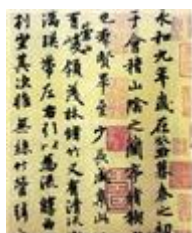 永和九年歲在癸丑暮春之初
于會稽山陰之蘭亭脩稧
也羣賢畢至少長咸集此
有崇山峻領茂林脩竹又有清流
湍暎帶左右引以為流觴曲
列坐其次雖無絲竹管弦